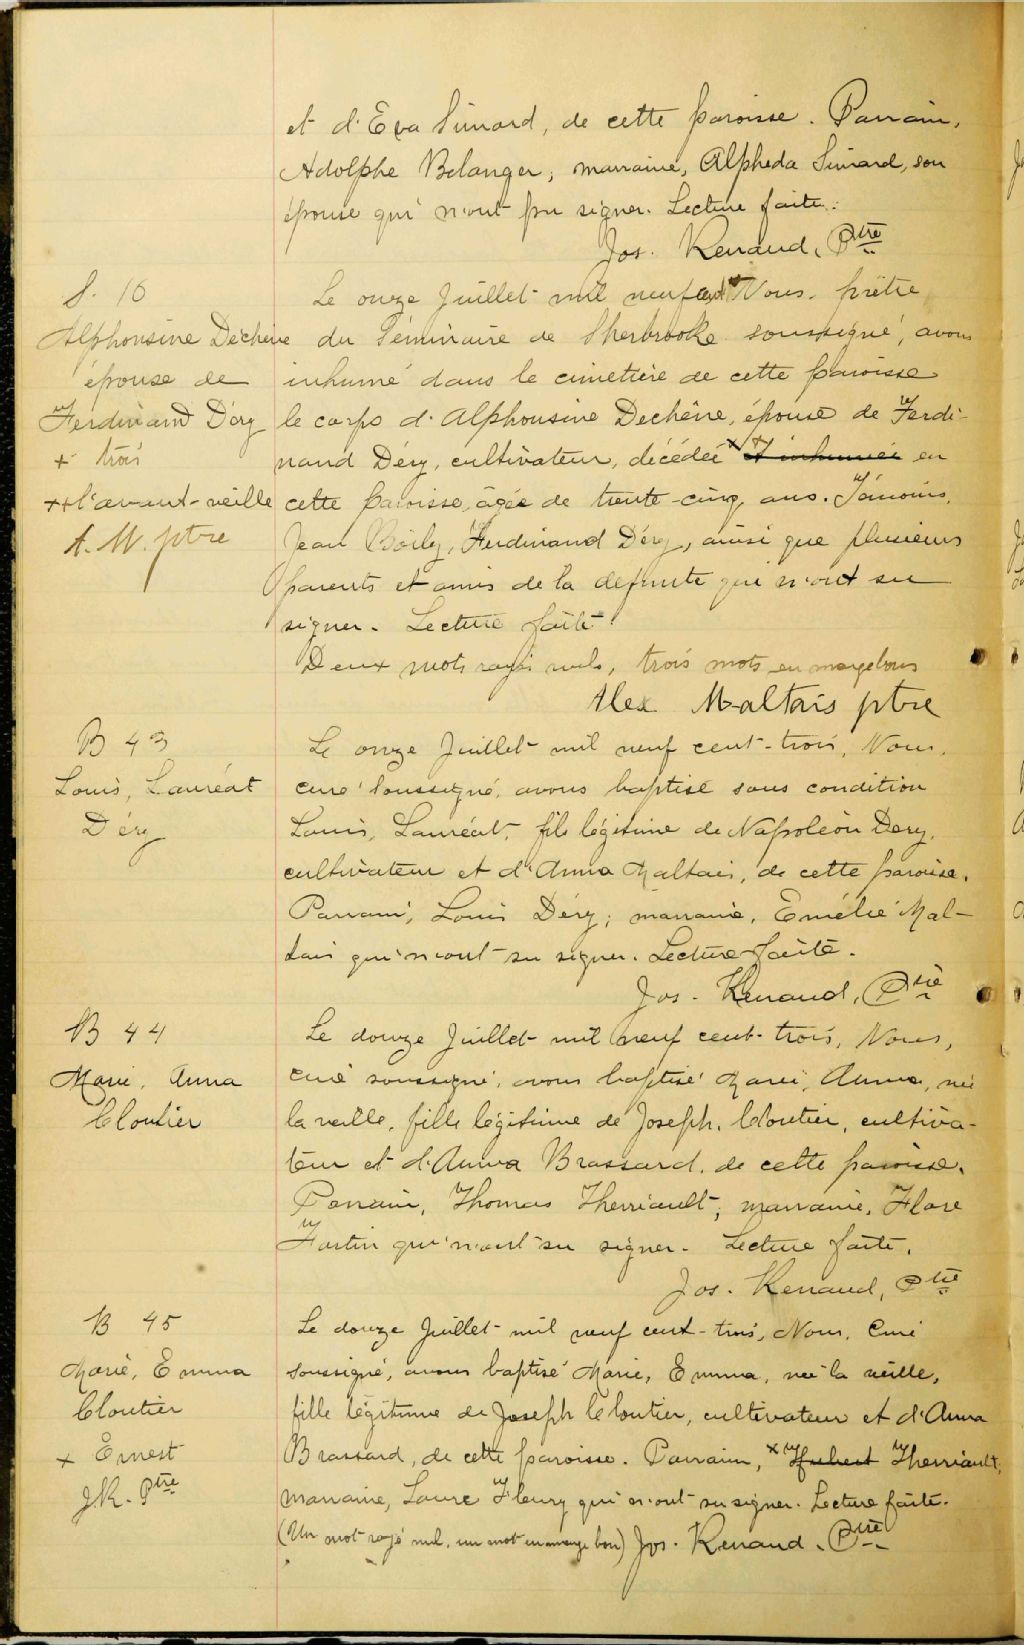 et d'Eva Simard, de cette paroisse. Parrain,
Adolphe Belanger; marraine, Alpheda Simard, son
épouse qui n'ont pu signer. Lecture faite.
Jos. Renaud, Ptre
S. 16
Alphonsine Dechêne
épouse de
Ferdinand Déry
+ trois
++ l'avant-veille
A. M. ptre
Le onze Juillet mil neuf cent + Nous, prêtre
du Séminaire de Sherbrooke soussigné, avons
inhumé dans le cimetière de cette paroisse
le corps d'Alphonsine Dechêne, épouse de Ferdi-
nand Déry, cultivateur, décédée x et inhumée en
cette paroisse, âgée de trente-cinq ans. Témoins,
Jean Boily, Ferdinand Déry, ainsi que plusieurs
parents et amis de la defunte qui n'ont su
signer. Lecture faite.
Deux mots rayés nuls, trois mots en marge bons
Alex Maltais ptre
B 43
Louis, Lauréat
Déry
Le onze Juillet mil neuf cent-trois, Nous,
curé soussigné, avons baptisé sous condition
Louis, Lauréat, fils légitime de Napoléon Dery,
cultivateur et d'Anna Maltais, de cette paroisse.
Parrain, Louis Déry; marraine, Emélie Mal-
tais qui n'ont su signer. Lecture faite.
Jos. Renaud, Ptre
B 44
Marie, Anna
Cloutier
Le douze Juillet mil neuf cent-trois, Nous,
curé soussigné, avons baptisé Marie, Anna, née
la veille, fille légitime de Joseph, Cloutier, cultiva-
teur et d'Anna Brassard, de cette paroisse.
Parrain, Thomas Therriault; marraine, Flore
Fortin qui n'ont su signer. Lecture faite.
Jos. Renaud, Ptre
B 45
Marie, Emma
Cloutier
x Ernest
J.R. Ptre
Le douze Juillet mil neuf cent-trois, Nous, Curé
soussigné, avons baptisé Marie, Emma, née la veille,
fille légitime de Joseph Cloutier, cultivateur et d'Anna
Brassard, de cette paroisse. Parrain, x Hubert Therriault,
marraine, Laure Fleury qui n'ont su signer. Lecture faite.
(Un mot rayé nul, un mot en marge bon) Jos. Renaud, Ptre